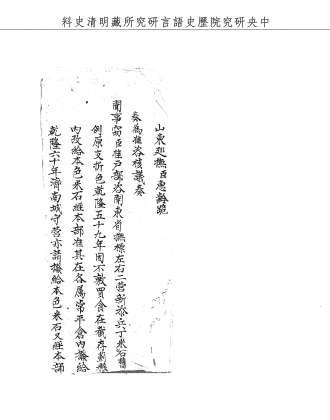 中央研究院歷史語言研究所藏明清史料
山東巡撫臣惠齡跪
奏為准咨核議奏
聞事竊臣准戶部咨開東省撫標左右二營新添兵丁米石舊
例原支折色乾隆五十九年因不敷買食在截存
內改給本色米石經本部准其在各屬常平倉內撥給
乾隆六十年濟南城守營亦請撥給本色米石又經本部